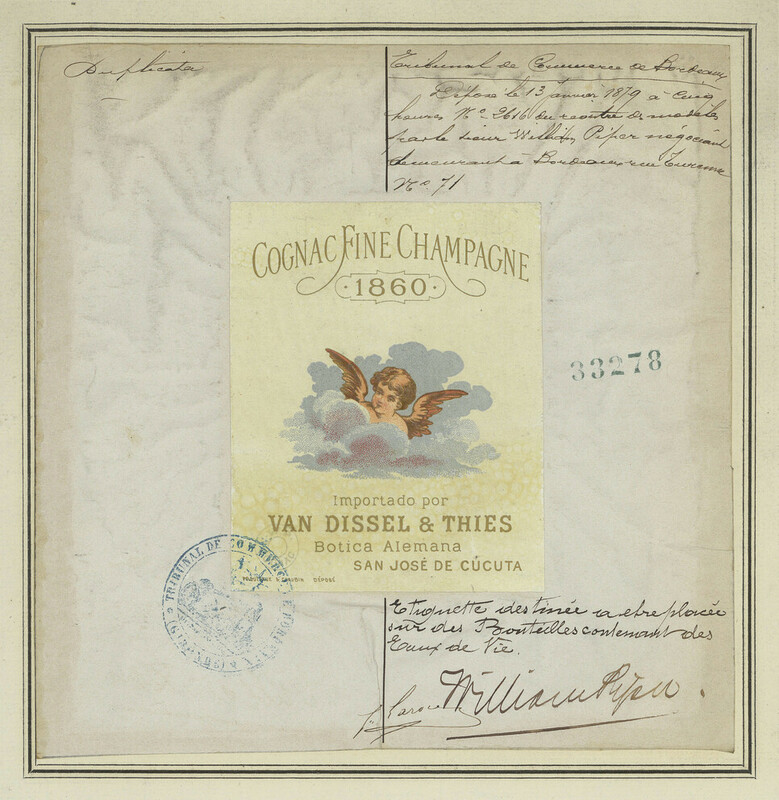 Duplicata
Tribunal de Commerce de Bordeaux
Déposé le 13 Janvier 1879 à Cinq
heures No 2616 du registre de modèles
par le sieur William Piper négociant
demeurant à Bordeaux rue Turenne
No 71
COGNAC FINE CHAMPAGNE
1860
33278
Importado por
VAN DISSEL & THIES
Botica Alemana
SAN JOSÉ DE CÚCUTA
DÉPOSÉ
TRIBUNAL DE COMMERCE
(GIRONDE)
Etiquette destinée a etre placée
sur des Bouteilles contenant des
Eaux de Vie.
William Piper